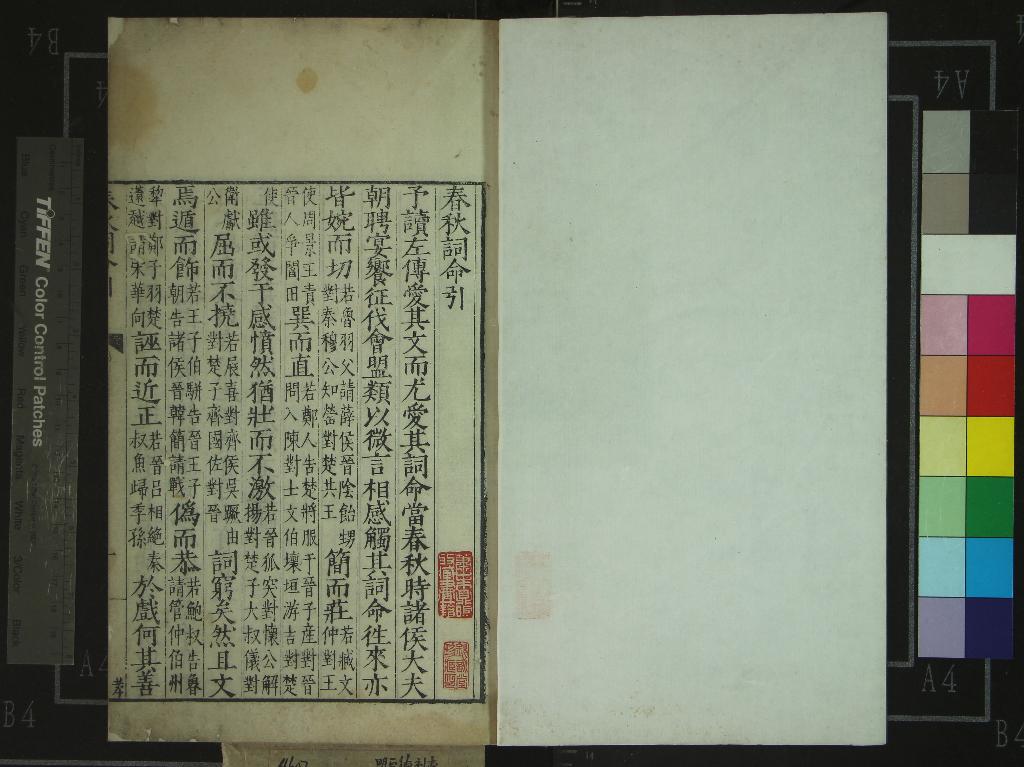 春秋詞命引
予讀左傳愛其文而尤愛其詞命當春秋時諸侯大夫
朝聘宴饗征伐會盟類以微言相感觸其詞命徃來亦
皆婉而切若魯羽父請薛侯晉陰飴甥對秦穆公知罃對楚共王簡而莊若臧文仲對王
使周景王責晉人爭閻田巽而直若鄭人告楚將服于晉子產對晉問入陳對士文伯壞垣游吉對楚
使雖或發于感憤然猶壯而不激若晉狐突對懷公解揚對楚子大叔儀對
衛獻公屈而不撓若展喜對齊侯吳蹶由對楚子齊國佐對晉詞窮矣然且文
焉遁而飾若王子伯駢告晉王子朝告諸侯晉韓簡請戰僞而恭若鮑叔告魯請管仲伯州
犂對鄭子羽楚薳越請宋華向誣而近正若晉呂相絶秦叔魚歸季孫於戲何其善
TIFFEN Color Control Patches
Blue
Cyan
Green
Yellow
Red
Magenta
White
3/Color
Black
B4
A4
A4
A4
B4